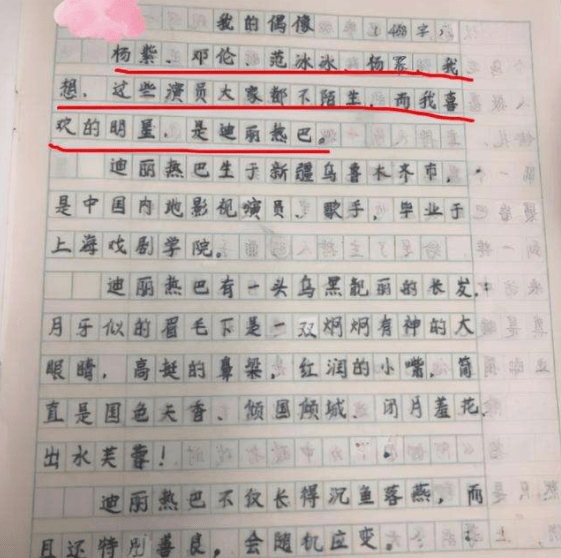 我的偶像 (488字)
杨紫、邓伦、范冰冰、杨幂、我
想,这些演员大家都不陌生,而我喜
欢的明星,是迪丽热巴。
迪丽热巴生于新疆乌鲁木齐市,
是中国内地影视演员、歌手,毕业于
上海戏剧学院。
迪丽热巴有一头乌黑靓丽的长发,
月牙似的眉毛下是一双炯炯有神的大
眼睛,高挺的鼻梁,红润的小嘴,简
直是国色天香、倾国倾城、闭月羞花、
出水芙蓉!
迪丽热巴不仅长得沉鱼落燕,而
且还特别善良,会随机应变。